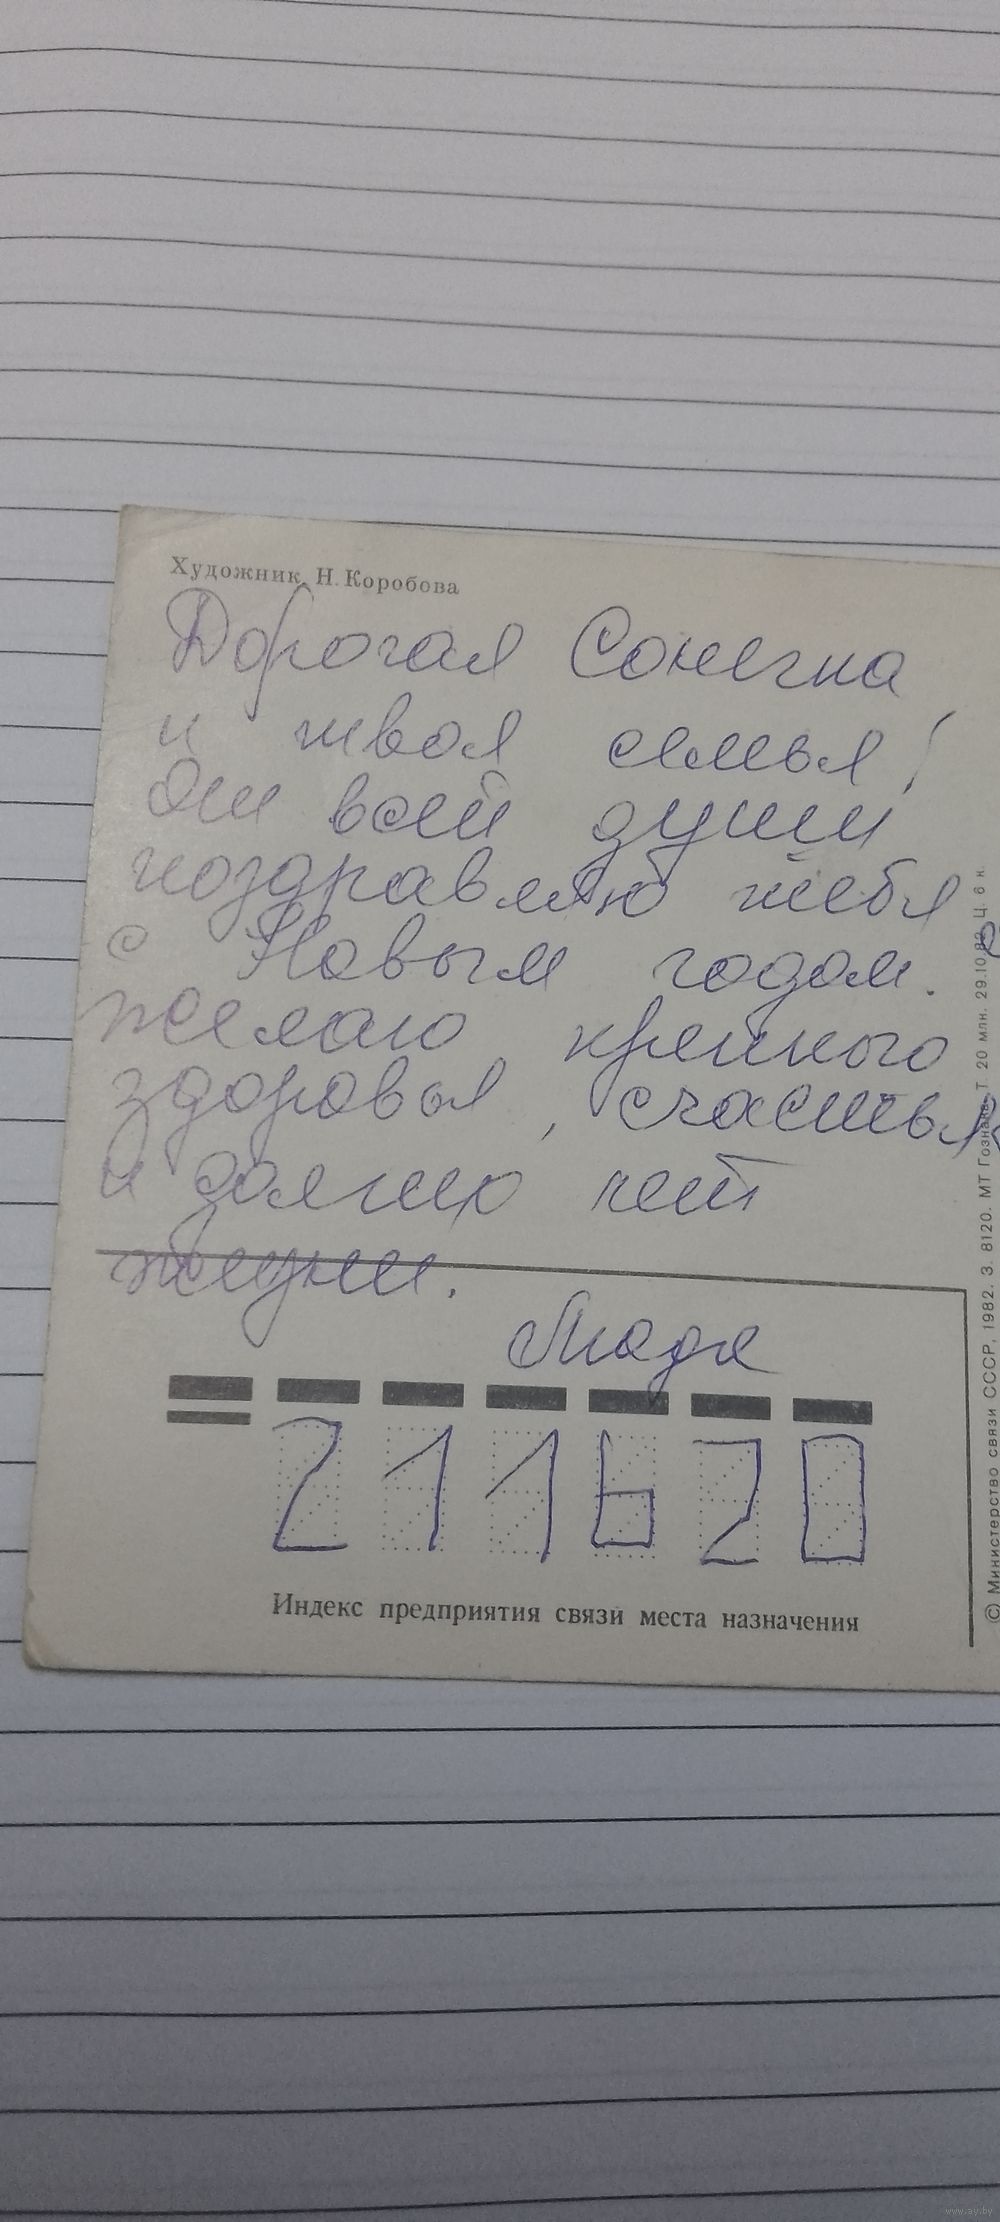 Художник Н. Коробова
Дорогая Сонечка
и твоя семья!
От всей души
поздравляю тебя
с Новым годом.
желаю крепкого
здоровья, счастья
и долгих лет
жизни.
Люда
211620
Индекс предприятия связи места назначения
© Министерство связи СССР, 1982. З. 8120. МТ Гознака. Т. 20 млн. 29.10.82 Ц. 6 к.
www.ay.by